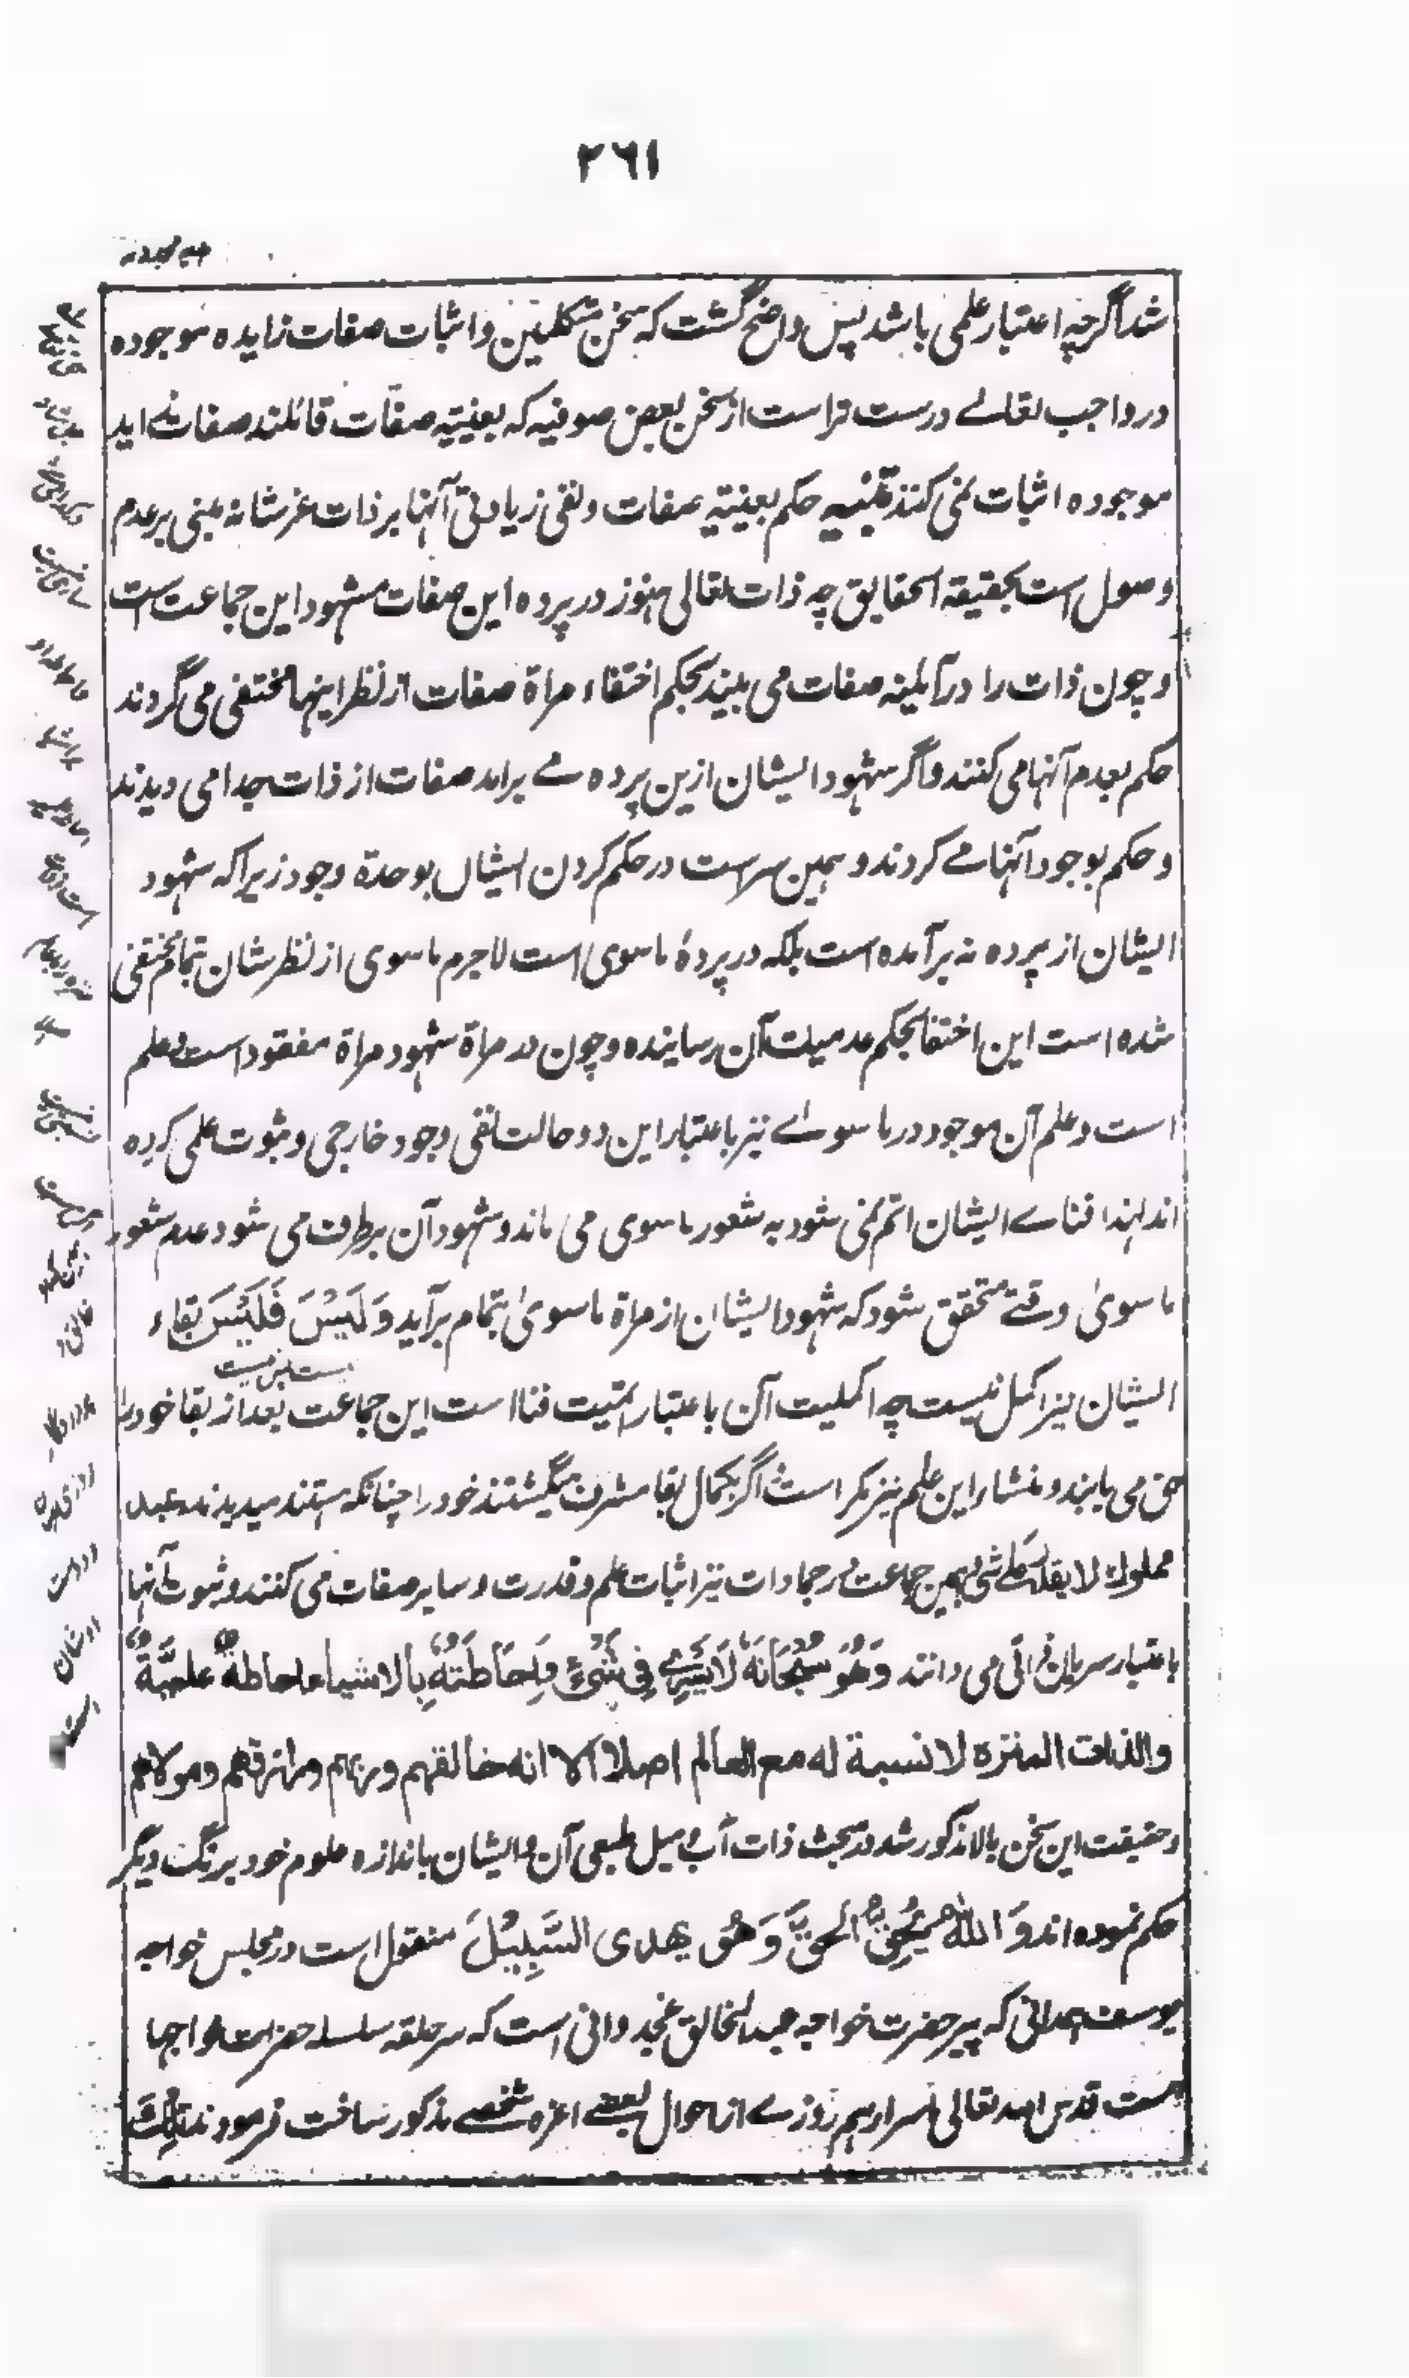 ٢٦١
شد اگرچہ اعتبار علمی باشد پس واضح گشت کہ سخن متکلمین واثبات صفات زایدہ موجودہ
در واجب تعالے درست تر است از سخن بعض صوفیہ کہ بعینیتہ صفات قائلند صفات
موجودہ اثبات نمی کنند تنبیہ حکم بعینیتہ صفات ونفی زیادتی آنہا بر ذات عز شانہ مبنی بر عدم
وصول است بحقیقۃ الحقایق چہ ذات تعالی ہنوز در پردہ این صفات مشہود این جماعت است
وچون ذات را در آیئنہ صفات می بینند بحکم اختفاء مراۃ صفات از نظر اینہا مختفی می گردند
حکم بعدم آنہا می کنند واگر شہود ایشان ازین پردہ مے براند صفات از ذات جدا می دیدند
وحکم بوجود آنہا مے کردند وہمین سر است در حکم کردن ایشاں بوحدۃ وجود زیرا کہ شہود
ایشان از پردہ نہ برآمدہ است بلکہ در پردۂ ماسوی است لاجرم ماسوی از نظر شان بتمام مختفی
شدہ است این اختفا بحکم عدمیت آن رسایندہ وچون در مراۃ شہود مراۃ مفقود است وعلم
است وعلم آن موجود در ماسوے نیز باعتبار این دو حالت نفی وجود خارجی وثبوت علمی کردہ
اند لہذا فناے ایشان اتم نمی شود بہ شعور ماسوی می ماند وشہود آن برطرف می شود عدم شعور
ماسویٰ وقتے متحقق شود کہ شہود ایشان از مراۃ ماسویٰ بتمام برآید وَلَیْسَ فَلَیْسَ بقاء
ایشان نیز اکمل نیست چہ اکملیت آن باعتبار اتمیت فنا است این جماعت بعد از بقا خود را
حق می یابند ومنشار این علم نیز سکر است اگر بکمال بقا مشرف میگشتند خود را چنانکہ ہستند میدیدند عبدا
مملوکا لا یقدر علی شی ہمین جماعت در جمادات نیز اثبات علم وقدرت وسایر صفات می کنند وثبوت آنہا
باعتبار سریان ذاتی می دانند وَھُوَ سُبْحَانَہٗ لَا یَسْرِیْ فِیْ شَیْءٍ وَاِحَاطَتُہٗ بِالاشیاء احاطۃٌ علمیَّۃٌ
والذات المنزہ لا نسبۃ لہ مع العالم اصلا الا انہ خالقہم وربہم ورازقہم ومولاہم
وحقیقت این سخن بالا مذکور شد در بحث ذات آب ومیل طبعی آن وایشان باندازہ علوم خود برنگ دیگر
حکم نمودہ اند وَاللہُ یُحِقُّ الحقَّ وَھُوَ یھدی السَّبِیْلَ منقول است در مجلس خواجہ
یوسف ہمدانی کہ پیر حضرت خواجہ عبدالخالق غجدوانی است کہ سر حلقہ سلسلہ حضرات خواجہا
ہست قدس اللہ تعالی اسرارہم روزے از احوال بعضے اعزہ شخصے مذکور ساخت فرمودند تِلْكَ